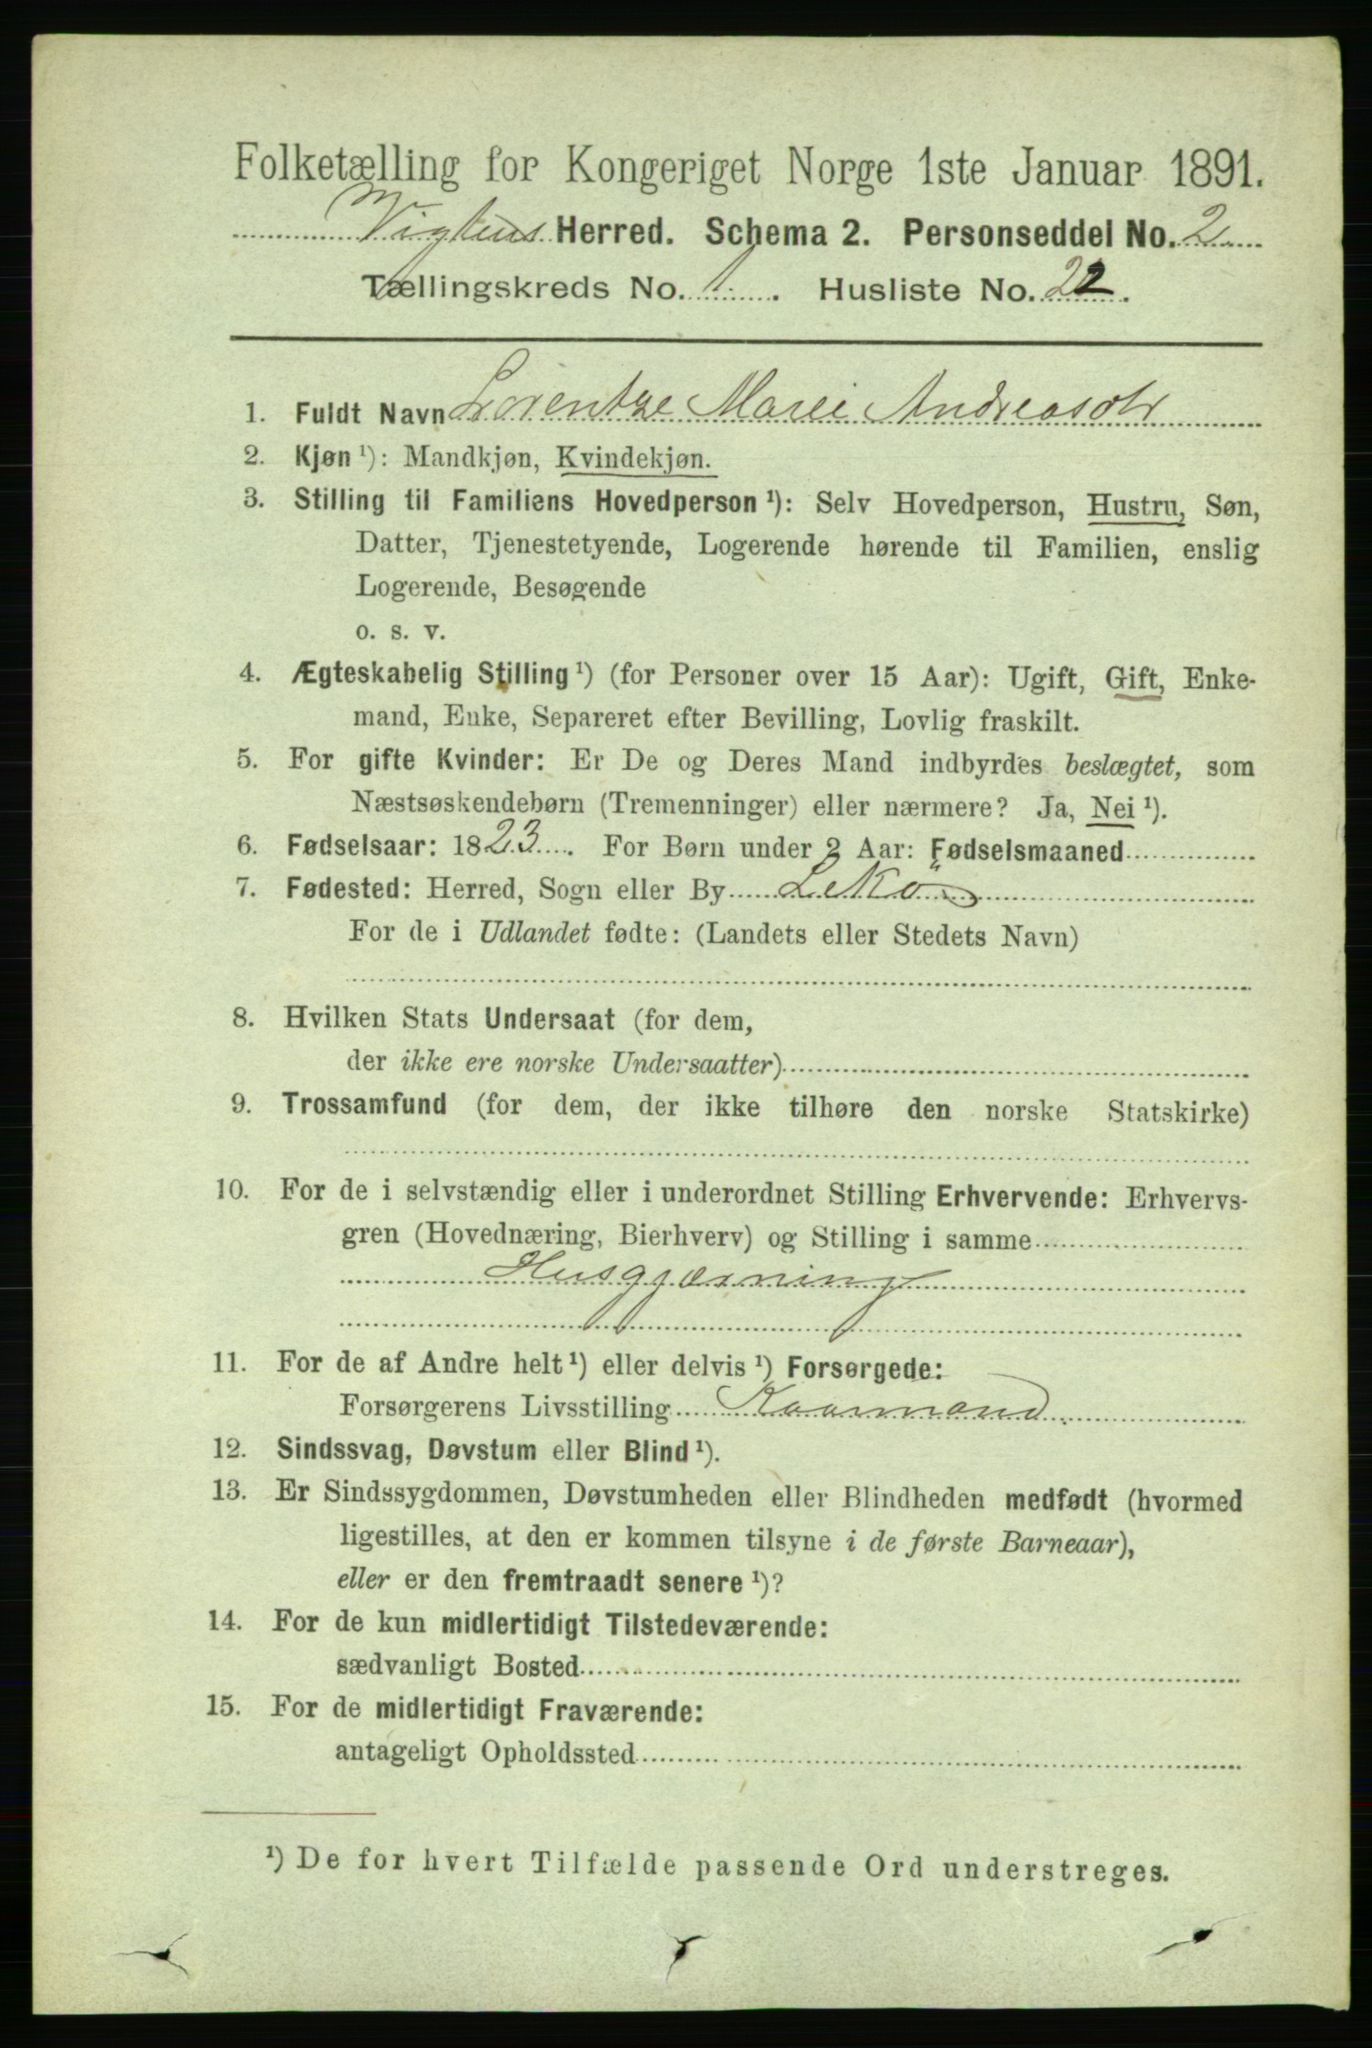 Folketælling for Kongeriget Norge 1ste Januar 1891.
Vigtens Herred. Schema 2. Personseddel No. 2
Tællingskreds No. 1. Husliste No. 22.
1. Fuldt Navn Lorentze Marei Andreasdtr
2. Kjøn ¹): Mandkjøn, Kvindekjøn.
3. Stilling til Familiens Hovedperson ¹): Selv Hovedperson, Hustru, Søn,
Datter, Tjenestetyende, Logerende hørende til Familien, enslig
Logerende, Besøgende
o. s. v.
4. Ægteskabelig Stilling ¹) (for Personer over 15 Aar): Ugift, Gift, Enke-
mand, Enke, Separeret efter Bevilling, Lovlig fraskilt.
5. For gifte Kvinder: Er De og Deres Mand indbyrdes beslægtet, som
Næstsøskendebørn (Tremenninger) eller nærmere? Ja, Nei ¹).
6. Fødselsaar: 1823. For Børn under 2 Aar: Fødselsmaaned
7. Fødested: Herred, Sogn eller By Lekö
For de i Udlandet fødte: (Landets eller Stedets Navn)
8. Hvilken Stats Undersaat (for dem,
der ikke ere norske Undersaatter)
9. Trossamfund (for dem, der ikke tilhøre den norske Statskirke)
10. For de i selvstændig eller i underordnet Stilling Erhvervende: Erhvervs-
gren (Hovednæring, Bierhverv) og Stilling i samme
Husgjærning
11. For de af Andre helt ¹) eller delvis ¹) Forsørgede:
Forsørgerens Livsstilling Kaarmand
12. Sindssvag, Døvstum eller Blind ¹).
13. Er Sindssygdommen, Døvstumheden eller Blindheden medfødt (hvormed
ligestilles, at den er kommen tilsyne i de første Barneaar),
eller er den fremtraadt senere ¹)?
14. For de kun midlertidigt Tilstedeværende:
sædvanligt Bosted
15. For de midlertidigt Fraværende:
antageligt Opholdssted
¹) De for hvert Tilfælde passende Ord understreges.